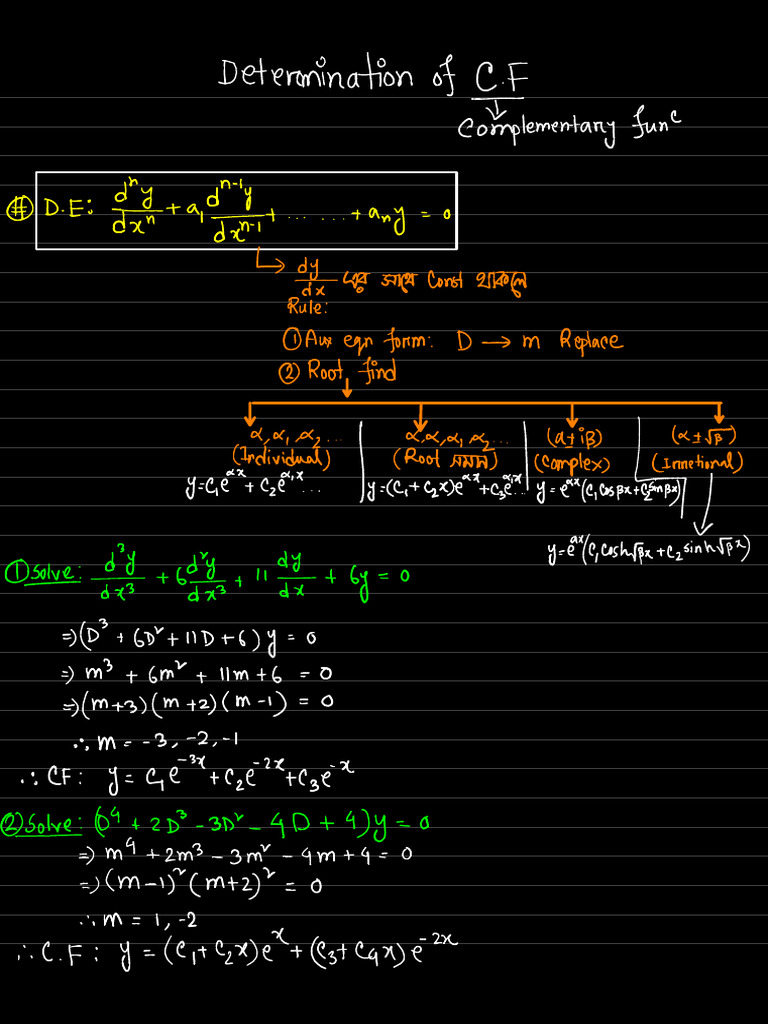 Determination of C.F
Complementary funᶜ
# D.E: dⁿy/dxⁿ + a₁ dⁿ⁻¹y/dxⁿ⁻¹ + ... ... + aₙy = 0
dy/dx এর সাথে Const থাকলে
Rule:
① Aux eqn form: D → m Replace
② Root find
α, α₁, α₂ ... α, α, α₁, α₂ ... (a ± iβ) (α ± √β)
(Individual) (Root সমান) (Complex) (Irrational)
y = c₁e^αx + c₂e^α₁x ... y = (c₁ + c₂x)e^αx + c₃e^α₁x ... y = e^αx (c₁ cos βx + c₂ sin βx)
y = e^ax (c₁ cosh √β x + c₂ sinh √β x)
① Solve: d³y/dx³ + 6 d²y/dx³ + 11 dy/dx + 6y = 0
⇒ (D³ + 6D² + 11D + 6) y = 0
⇒ m³ + 6m² + 11m + 6 = 0
⇒ (m+3)(m+2)(m-1) = 0
∴ m = -3, -2, -1
∴ CF: y = c₁e^-3x + c₂e^-2x + c₃e^-x
② Solve: (D⁴ + 2D³ - 3D² - 4D + 4) y = 0
⇒ m⁴ + 2m³ - 3m² - 4m + 4 = 0
⇒ (m-1)² (m+2)² = 0
∴ m = 1, -2
∴ C.F: y = (c₁ + c₂x)e^x + (c₃ + c₄x)e^-2x